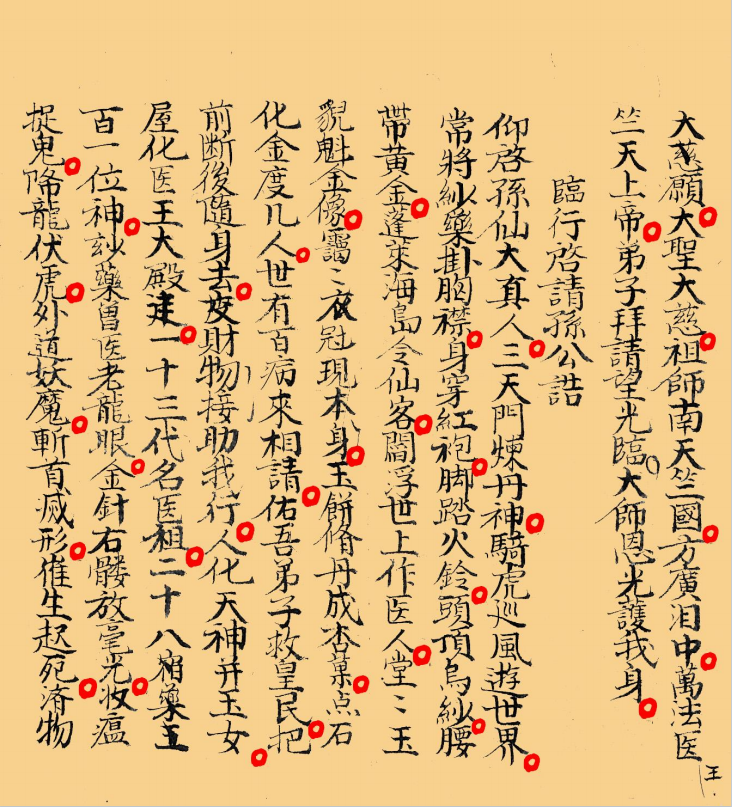 大慈願大聖大慈祖師南天竺國方廣泪中萬法医王
竺天上帝弟子拜請望光臨大師恩光護我身
臨行啓請孫公誥
仰啓孫仙大真人三天門煉丹神騎虎巡風遊世界
常將紗藥掛胸襟身穿紅袍脚踏火鈴頭頂烏紗腰
帶黃金蓬萊海島令仙客閻浮世上作医人堂〻玉
貌魁金像靄〻衣冠現本身玉餅脩丹成杏菓点石
化金度几人世有百病來相請佑吾弟子救皇民把
前断後隨身去攻財物接助我行人化天神并玉女
屋化医王大殿達一十三代名医祖二十八宿藥王
百一位神玅藥曾医老龍眼金針右髅放毫光收瘟
捉鬼降龍伏虎外道妖魔斬首滅形催生起死済物